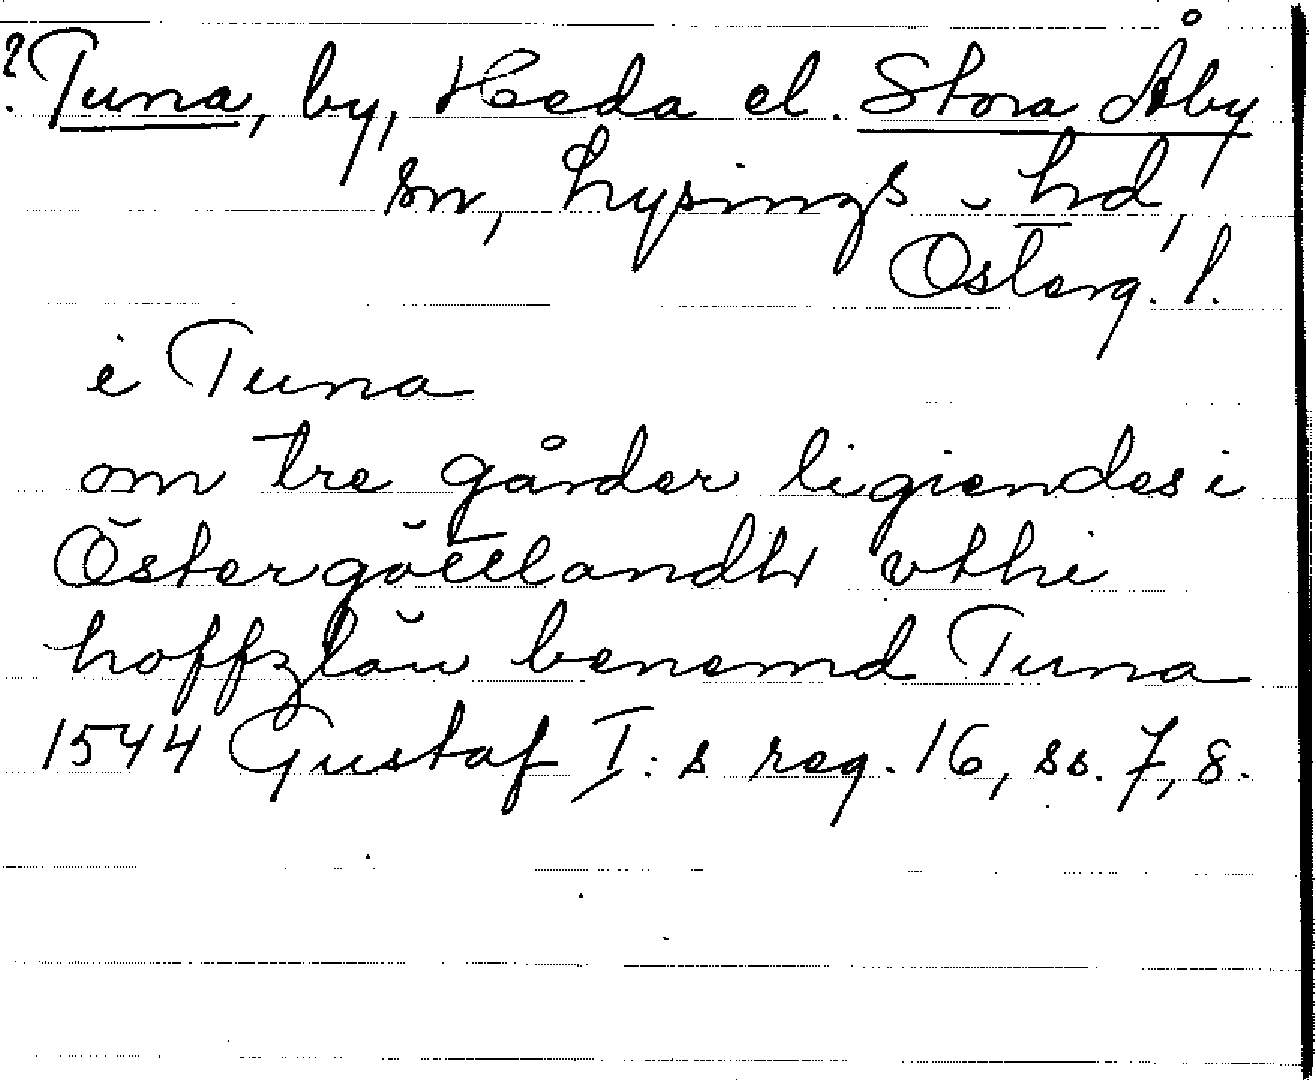 ? Tuna, by, Heda el. Stora Åby
sn, Lysings hd,
Österg. l.
i Tuna
om tre gårder ligiendes i
Östergöttlandh vthi
hoffzlau benemd Tuna
1544 Gustaf I:s reg. 16, ss. 7, 8.